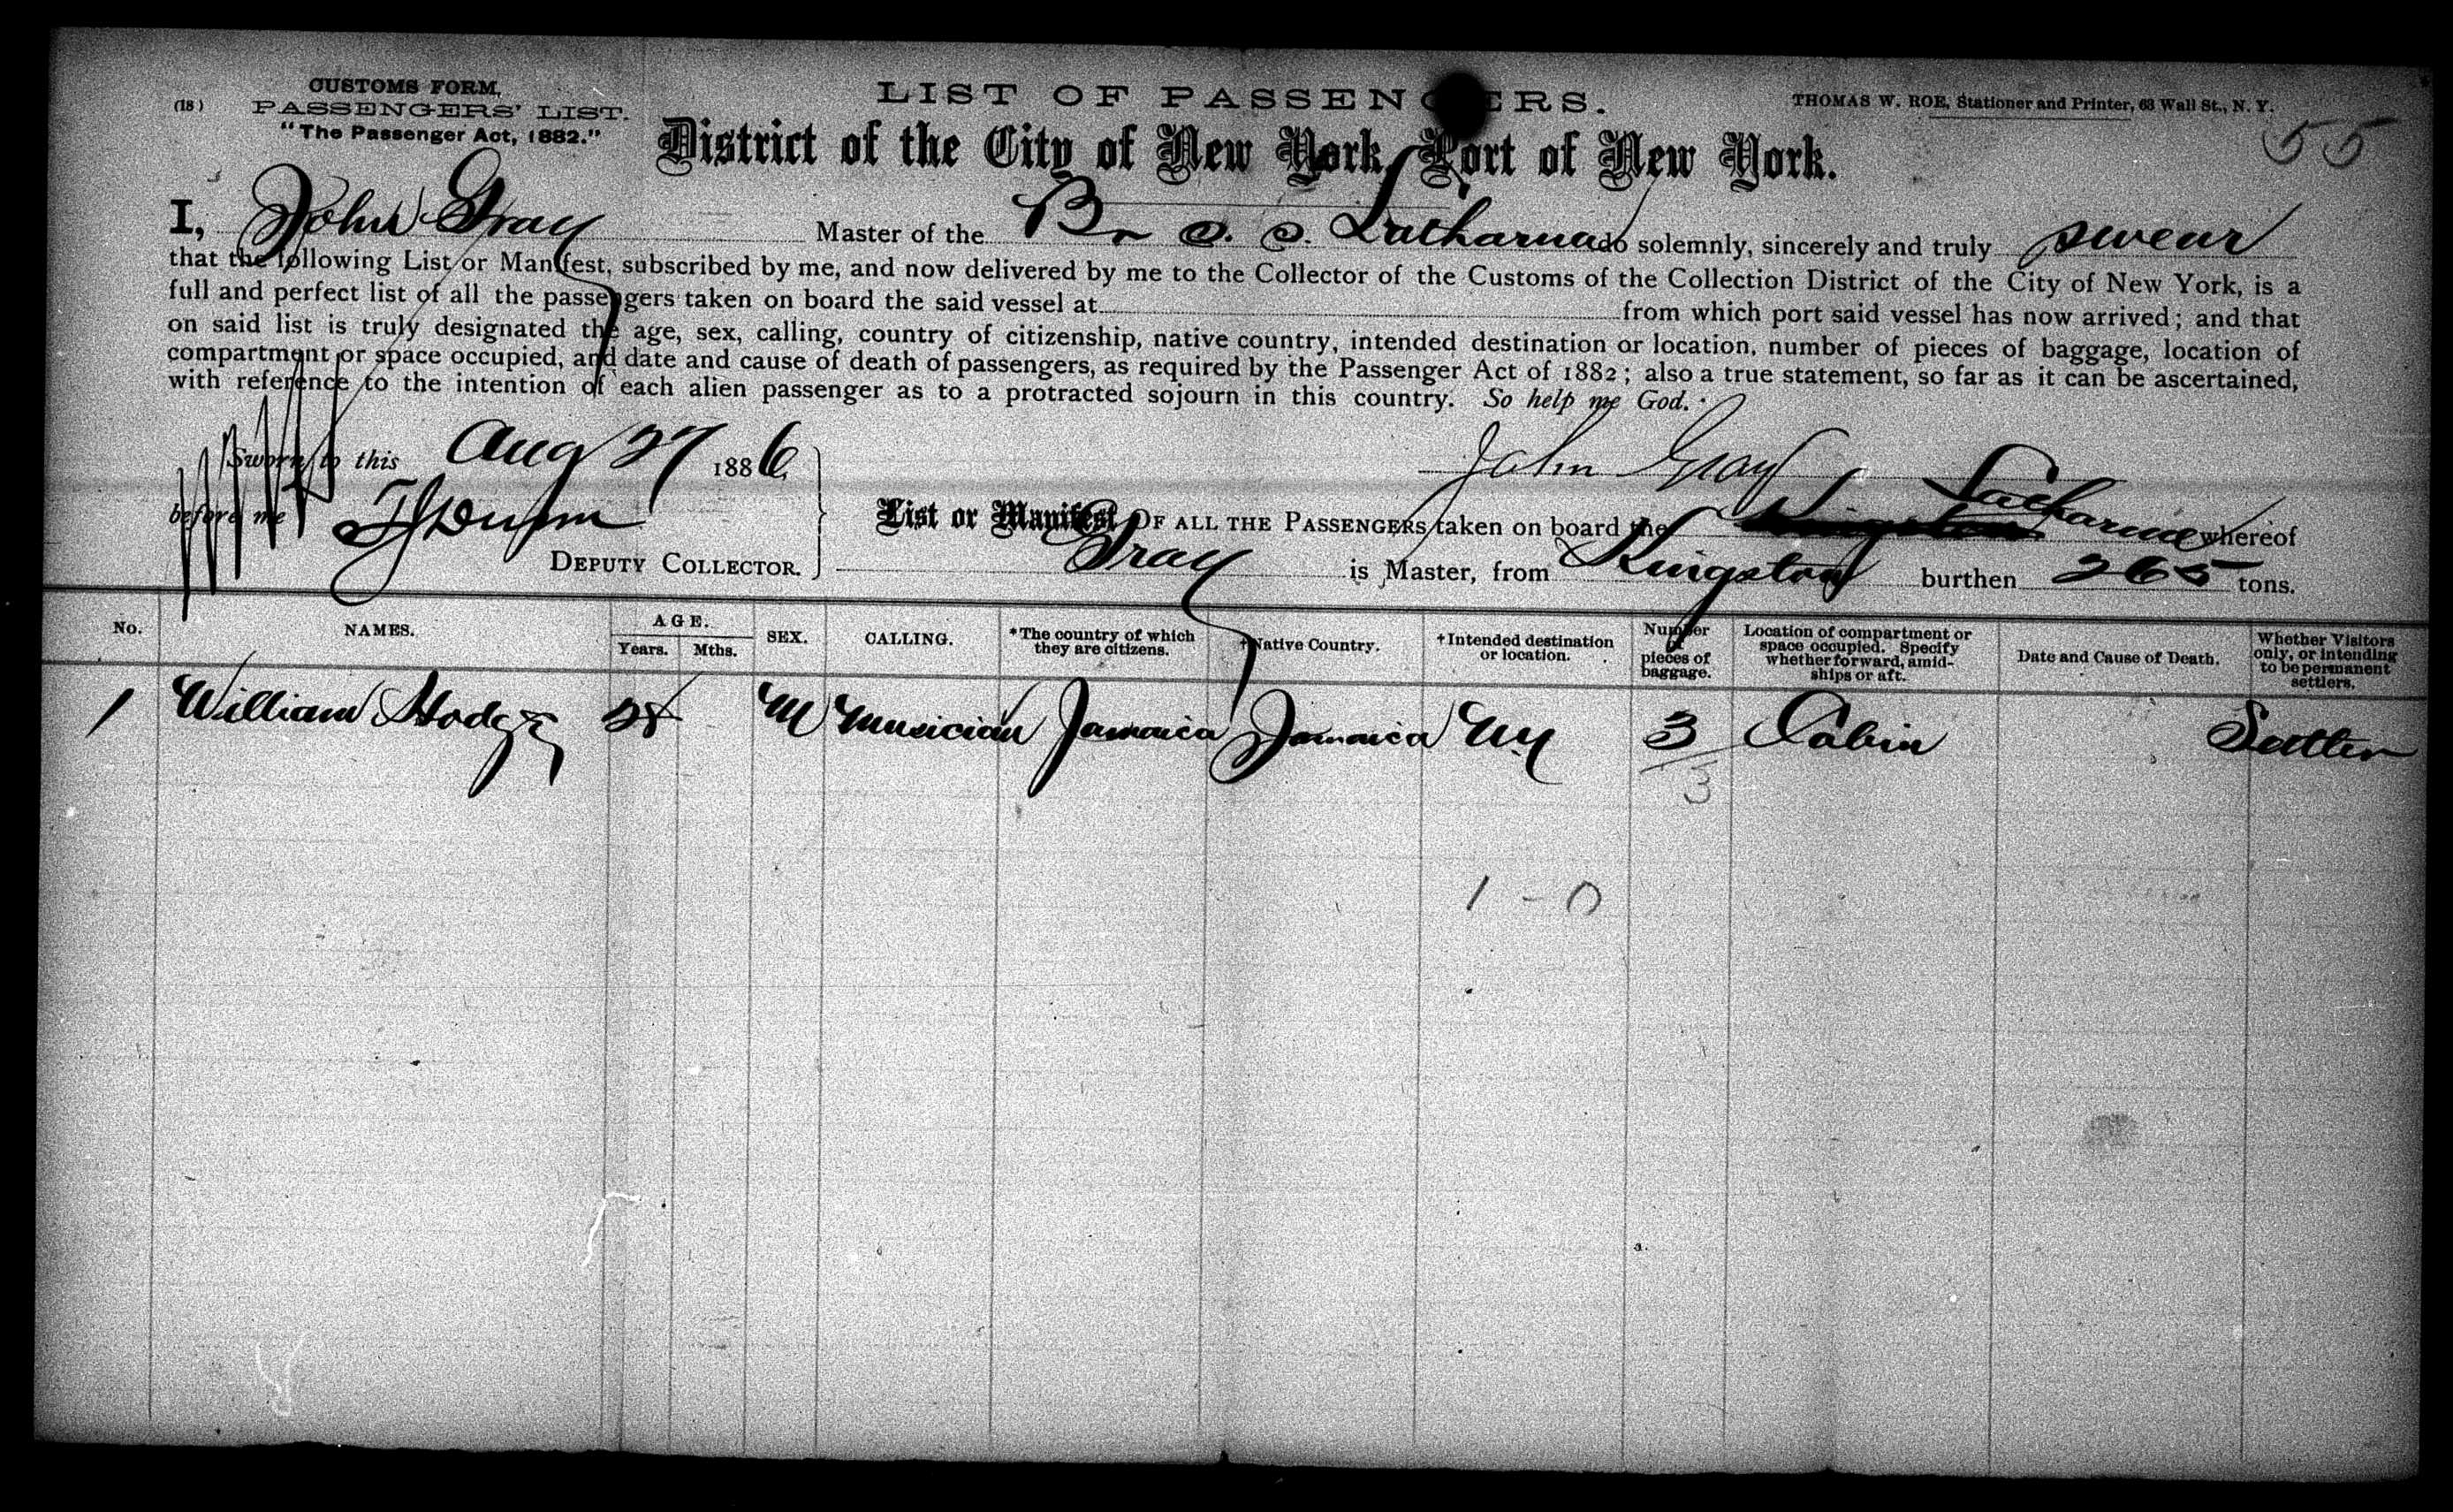 (18) CUSTOMS FORM,
PASSENGERS' LIST.
"The Passenger Act, 1882."
LIST OF PASSENGERS.
THOMAS W. ROE, Stationer and Printer, 63 Wall St., N. Y.
55
District of the City of New York, Port of New York.
I, John Gray Master of the Br S. S. Datharna do solemnly, sincerely and truly swear
that the following List or Manifest, subscribed by me, and now delivered by me to the Collector of the Customs of the Collection District of the City of New York, is a
full and perfect list of all the passengers taken on board the said vessel at from which port said vessel has now arrived; and that
on said list is truly designated the age, sex, calling, country of citizenship, native country, intended destination or location, number of pieces of baggage, location of
compartment or space occupied, and date and cause of death of passengers, as required by the Passenger Act of 1882; also a true statement, so far as it can be ascertained,
with reference to the intention of each alien passenger as to a protracted sojourn in this country. So help me God.
Sworn to this Aug 27 1886
John Gray
before me
DEPUTY COLLECTOR.
List or Manifest OF ALL THE PASSENGERS taken on board the whereof
Gray is Master, from Kingston burthen 265 tons.
No. NAMES. AGE. Years. Mths. SEX. CALLING. *The country of which they are citizens. †Native Country. †Intended destination or location. Number of pieces of baggage. Location of compartment or space occupied. Specify whether forward, amidships or aft. Date and Cause of Death. Whether Visitors only, or intending to be permanent settlers.
1 William Hodge 28 M Musician Jamaica Jamaica NY 3 Cabin Settler
3
1 - 0